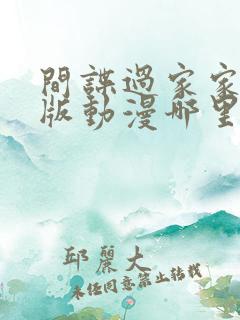 間諜過家家
版動漫哪里
邱麗大
未任同意禁止转载